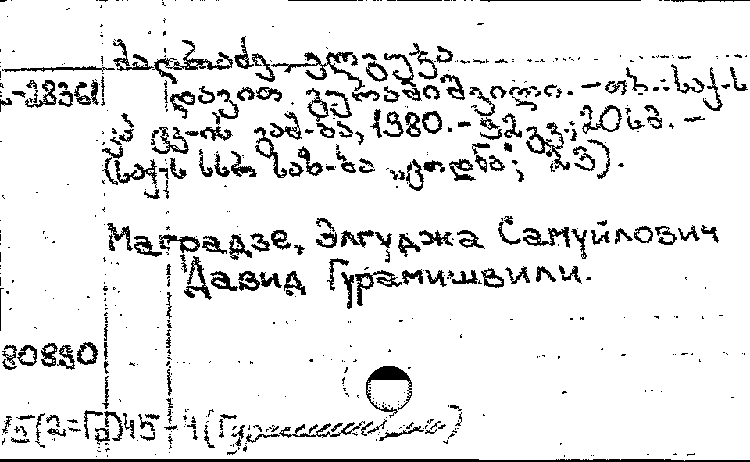 მაღრაძე, ელგუჯა
-28361
დავით გურამიშვილი. – თბ.: საქ-ს
კპ ცკ-ის გამ-ბა, 1980. – 32 გვ.; 20სმ. –
(საქ-ს სსრ საზ-ბა „ცოდნა“; 23).
Маградзе, Элгуджа Самуйлович
Давид Гурамишвили.
80890
15(2=Гр)45-4(Гурамишвили)